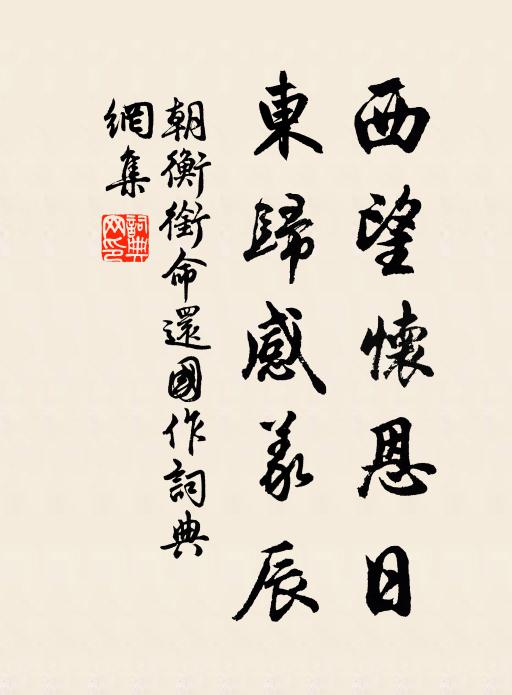 西望懷恩日
東歸感義辰
朝衡銜命還國作詞典
網集
詞典網印